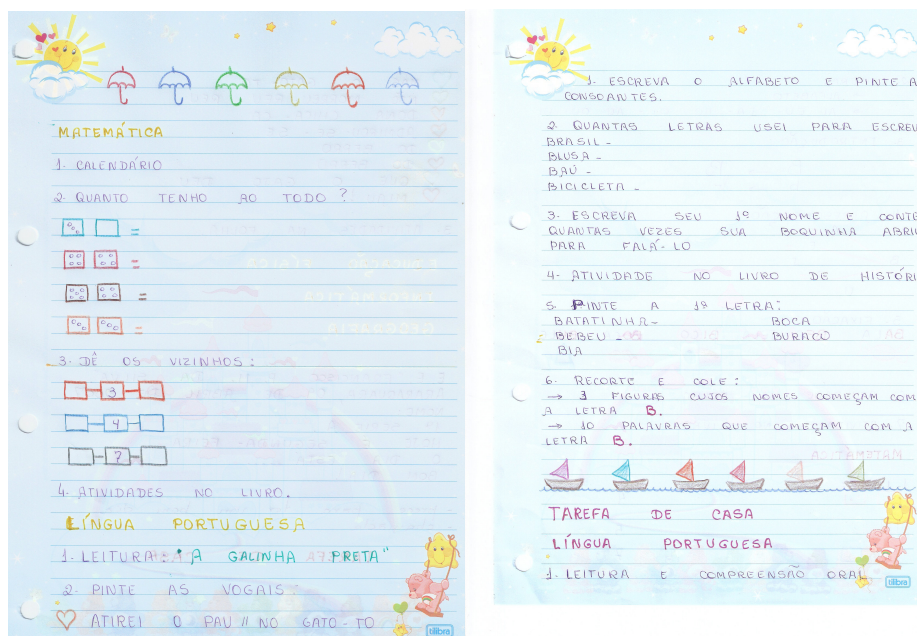 MATEMÁTICA
1. CALENDÁRIO
2. QUANTO TENHO AO TODO ?
=
=
=
=
3. DÊ OS VIZINHOS :
3
4
7
4. ATIVIDADES NO LIVRO.
LÍNGUA PORTUGUESA
1. LEITURA : "A GALINHA PRETA"
2. PINTE AS VOGAIS :
ATIREI O PAU // NO GATO - TO
tilibra
1. ESCREVA O ALFABETO E PINTE A
CONSOANTES.
2. QUANTAS LETRAS USEI PARA ESCREV
BRASIL -
BLUSA -
BAÚ -
BICICLETA -
3- ESCREVA SEU 1º NOME E CONTE
QUANTAS VEZES SUA BOQUINHA ABRIU
PARA FALÁ-LO
4- ATIVIDADE NO LIVRO DE HISTÓRI
5. PINTE A 1ª LETRA:
BATATINHA- BOCA
BEBEU - BURACO
BIA
6. RECORTE E COLE :
→ 3 FIGURAS CUJOS NOMES COMEÇAM COM
A LETRA B.
→ 10 PALAVRAS QUE COMEÇAM COM A
LETRA B.
TAREFA DE CASA
LÍNGUA PORTUGUESA
1. LEITURA E COMPREENSÃO ORAL
tilibra